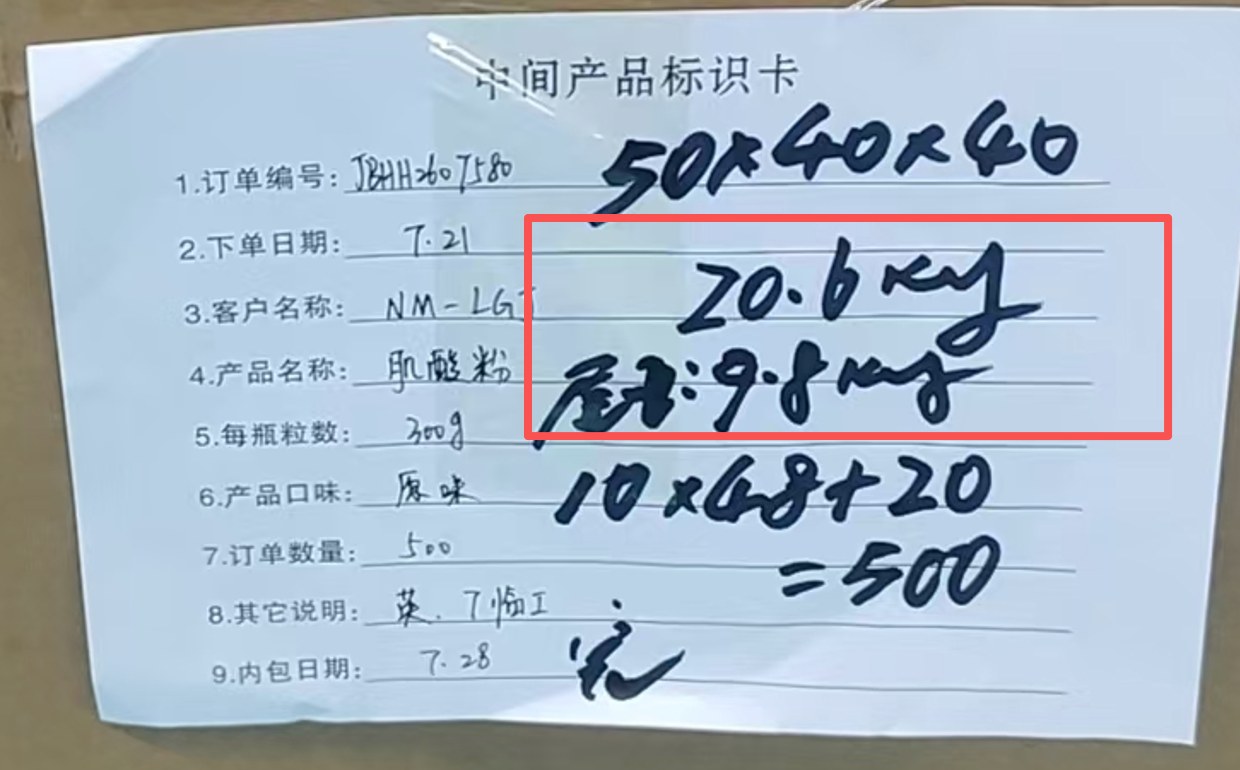 中间产品标识卡
50×40×40
1.订单编号: JBHH2607580
2.下单日期: 7.21
20.6kg
3.客户名称: NM-LGJ
4.产品名称: 肌酸粉
尾箱:9.8kg
5.每瓶粒数: 300g
6.产品口味: 原味
10×48+20
7.订单数量: 500
=500
8.其它说明: 英. 7临工
9.内包日期: 7.28
完